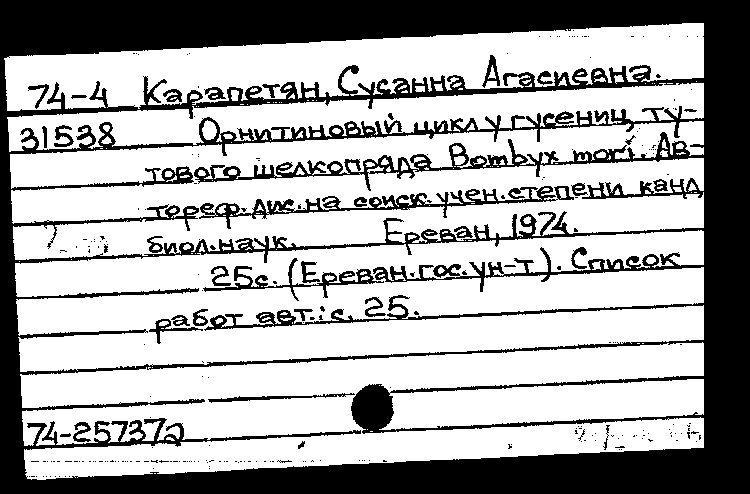 74-4 Карапетян, Сусанна Агасиевна.
31538 Орнитиновый цикл у гусениц ту-
тового шелкопряда Bombyx mori. Ав-
тореф. дис. на соиск. учен. степени канд
биол. наук. Ереван, 1974.
25с. (Ереван. гос. ун-т). Список
работ авт.: с. 25.
74-25737а